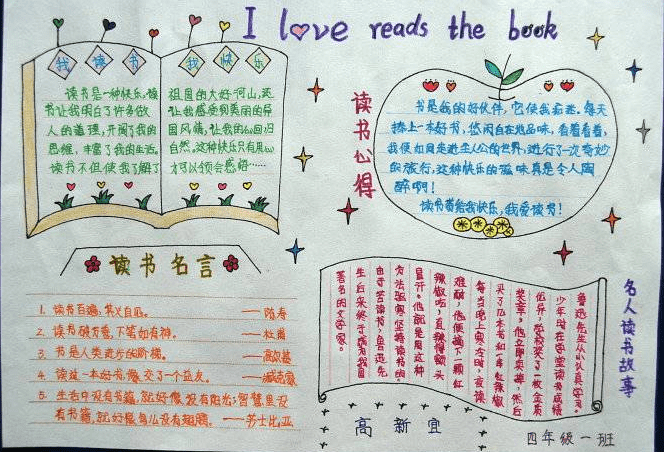 I love reads the book
我读书 我快乐
读书是一种快乐,读
书让我明白了许多做
人的道理,开阔了我的
思维,丰富了我的生活。
读书不但使我了解了
祖国的大好河山,还
让我感受到美丽的异
国风情,让我的心回归
自然,这种快乐只有用心
才可以领会感悟……
读书心得
书是我的好伙伴,它使我着迷。每天
捧上一本好书,悠闲自在地品味,看着看着,
我便如同走进主人公的世界,进行了一次奇妙
的旅行,这种快乐的滋味真是令人陶
醉啊!
读书带给我快乐,我爱读书!
读书名言
1. 读书百遍,其义自见。 ——陈寿
2. 读书破万卷,下笔如有神。 ——杜甫
3. 书是人类进步的阶梯。 ——高尔基
4. 读过一本好书,像交了一个益友。 ——臧克家
5. 生活中没有书籍,就好像没有阳光;智慧里没
有书籍,就好像鸟儿没有翅膀。 ——莎士比亚
名人读书故事
鲁迅先生从小认真学习。
少年时在学堂读书成绩
优异,学校奖了一枚金质
奖章,他立即卖掉,然后
买了几本书和一串红辣椒
每当晚上寒冷时,夜读
难耐,他便摘下一颗红
辣椒吃,直辣得额头
冒汗。他就是用这种
方法驱寒坚持读书的,
由于苦读书,鲁迅先
生后来终于成为我国
著名的文学家。
高新宜
四年级一班